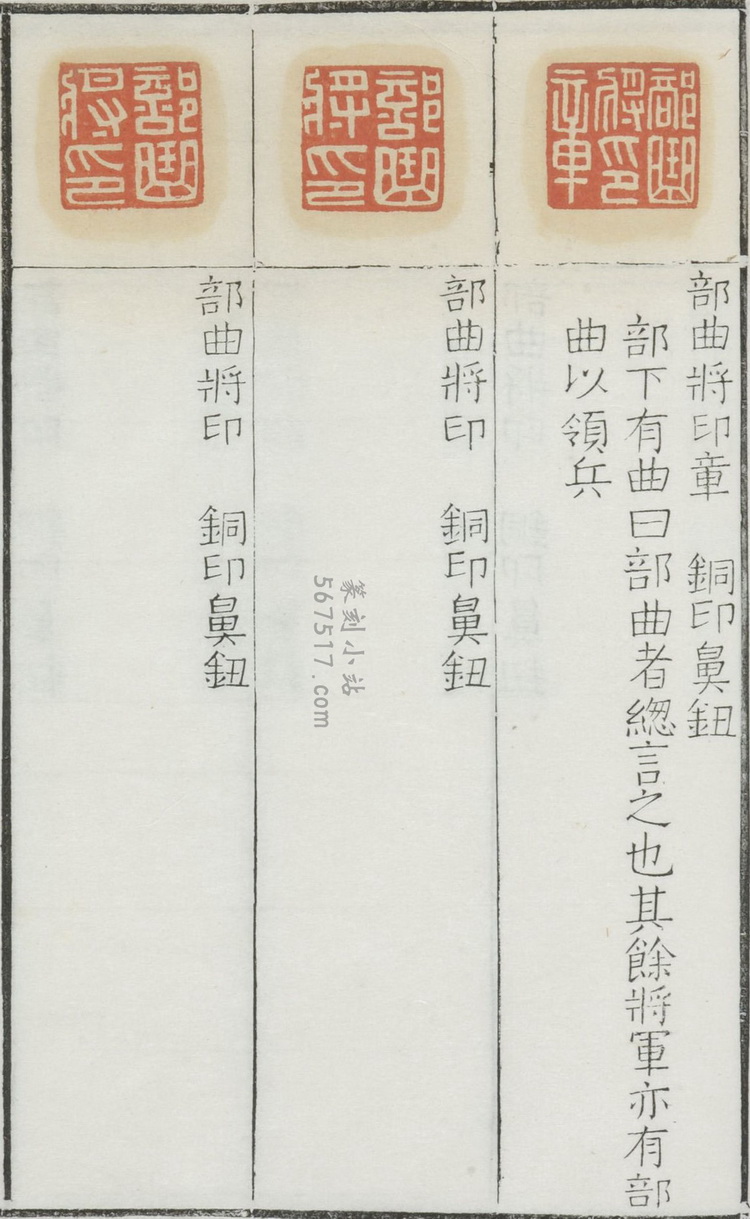 部曲將印章
部曲將印章 銅印鼻鈕
部下有曲曰部曲者緫言之也其餘將軍亦有部
曲以領兵
部曲將印
部曲將印 銅印鼻鈕
部曲將印
部曲將印 銅印鼻鈕
篆刻小站
567517.com